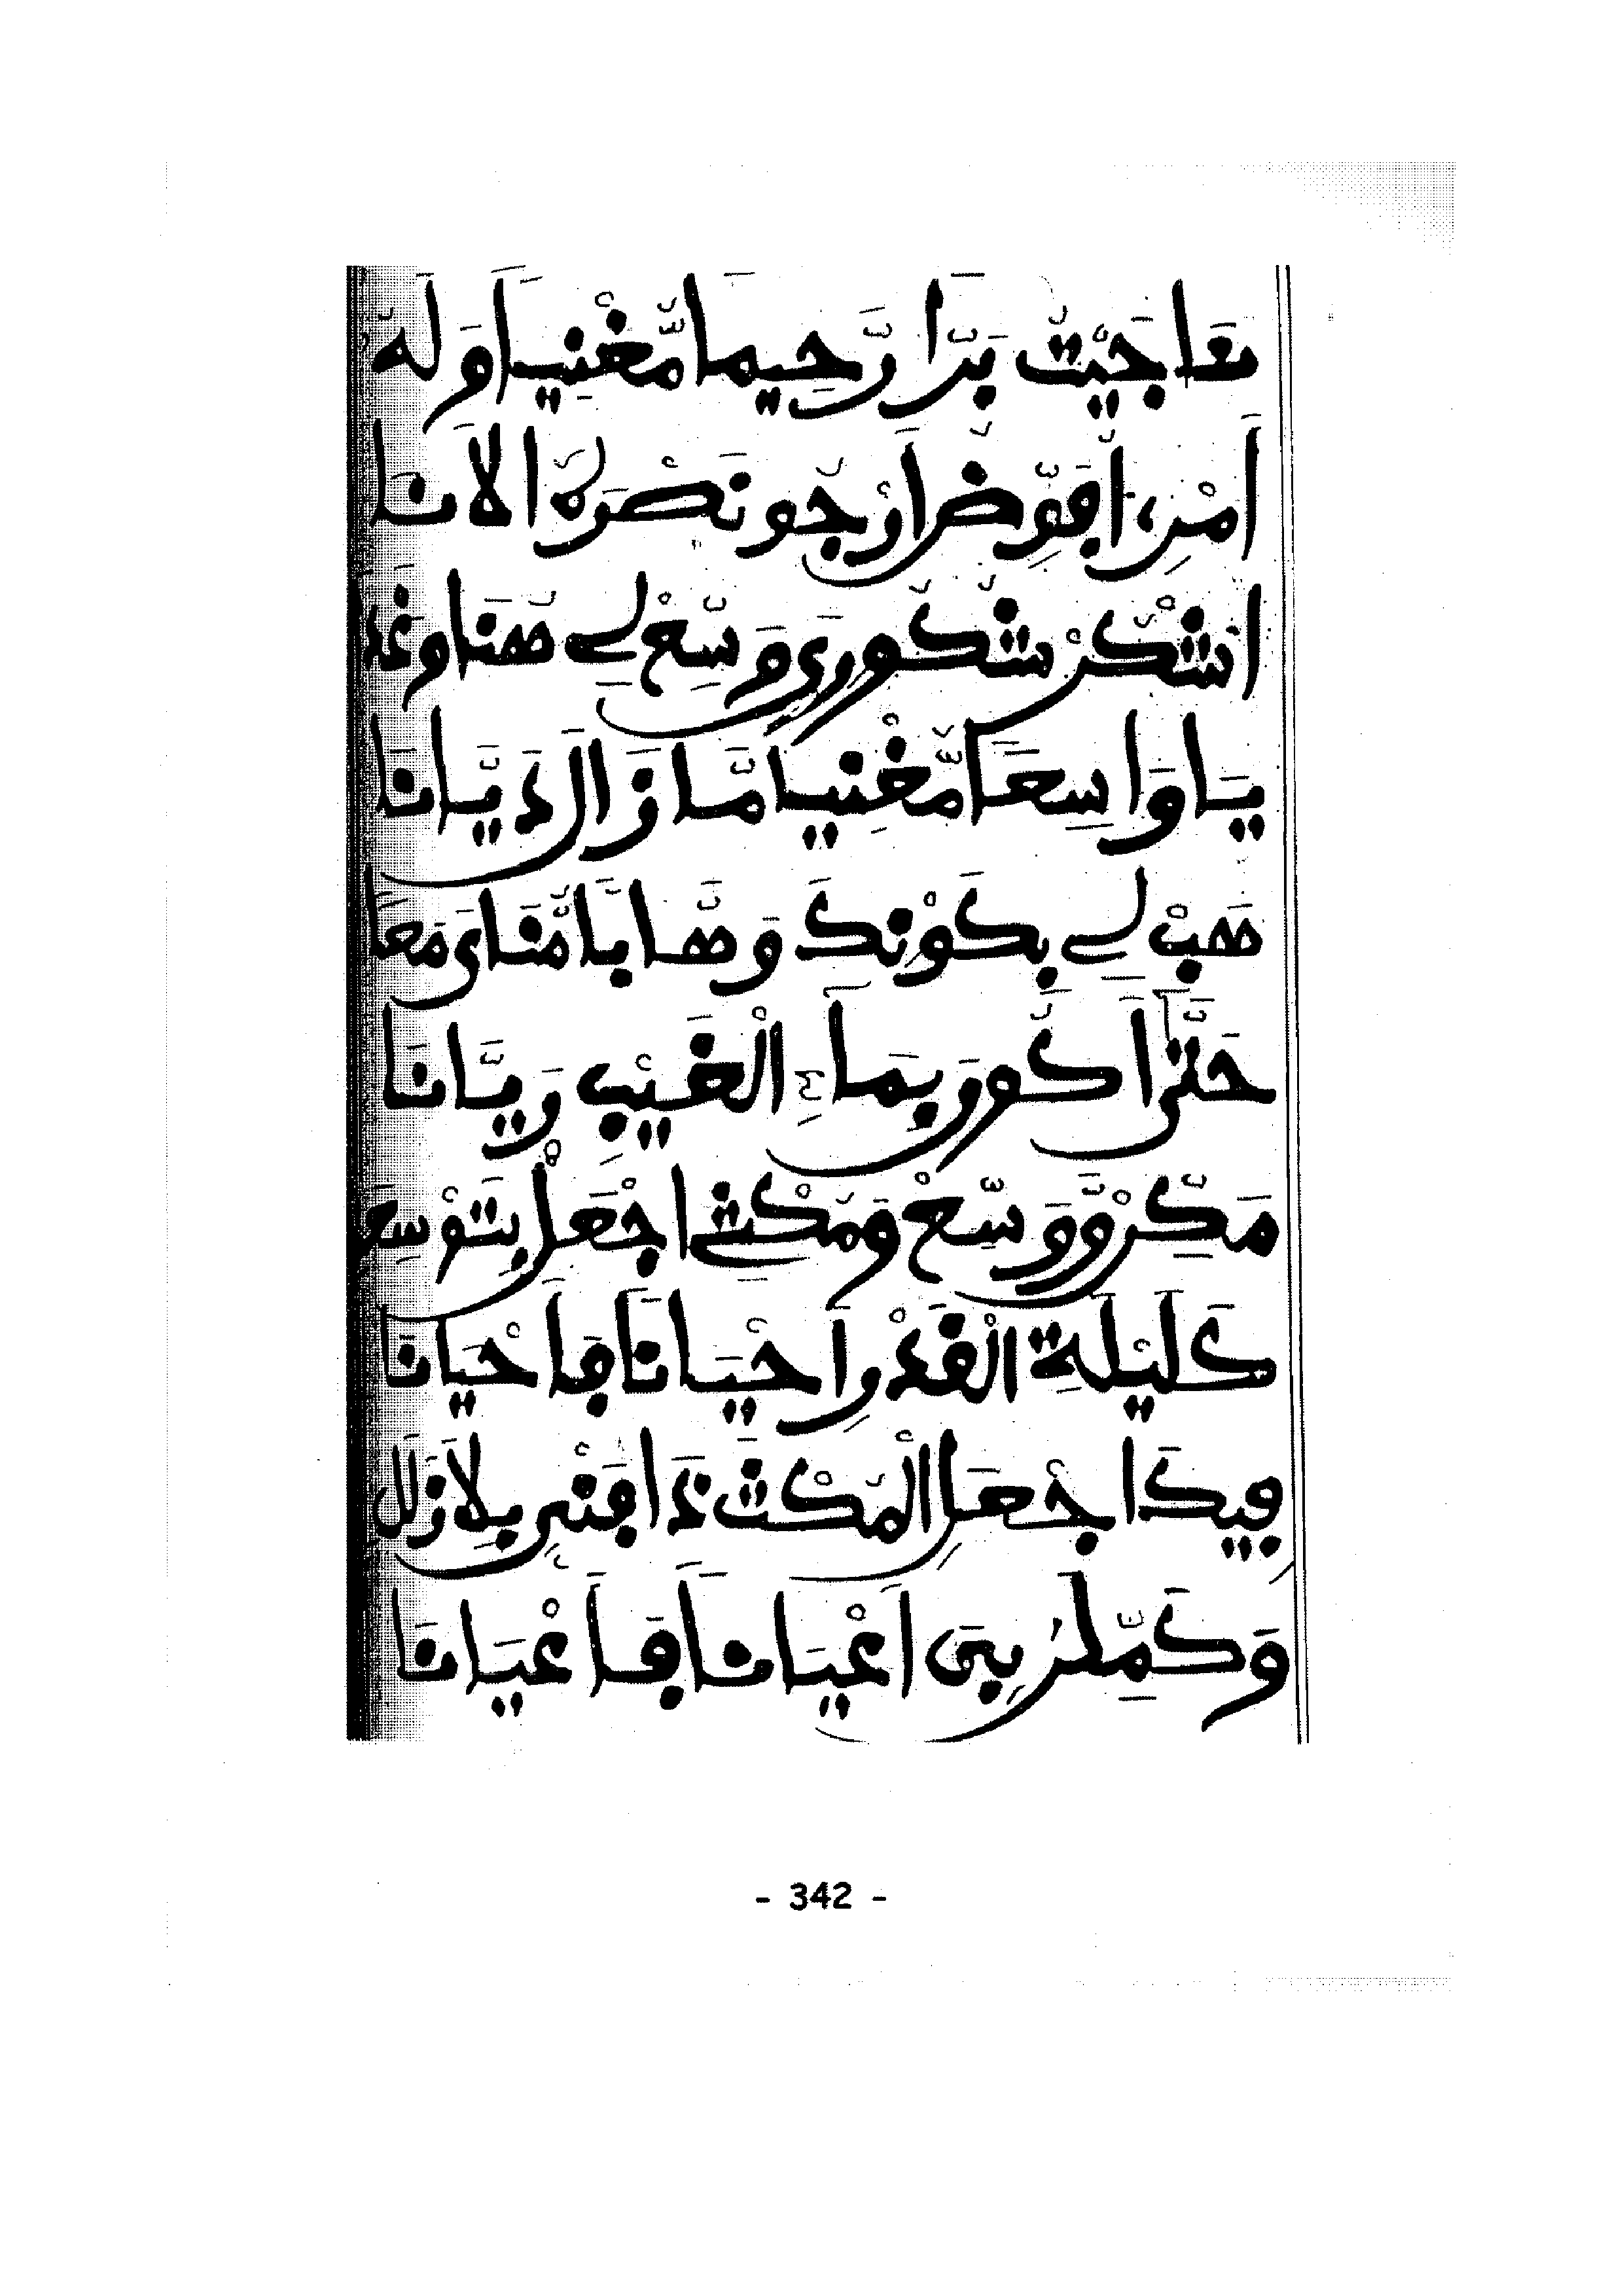 نَاجَيْتُ بَرّاً رَّحِيماً مُّغْنِياً وَلَهُ
أَمْرِي أُفَوِّضُ أَرْجُو نَصْرَهُ الْآنَا
أُشْكُرْ شُكُورِي وَوَسِّعْ لِي هُنَا وَغَداً
يَا وَاسِعاً مُّغْنِياً مَّا زَالَ دَيَّانَا
هَبْ لِي بِكَوْنِكَ وَهَّاباً مُّنَايَ مَعاً
حَتَّى أَكُونَ بِمَاءِ الْغَيْبِ رَيَّانَا
مَكِّنْ وَوَسِّعْ وَمُكْثِي اجْعَلْ بِتَوْسِعَةٍ
كَلَيْلَةِ الْقَدْرِ أَحْيَاناً فَأَحْيَانَا
فِيكَ اجْعَلِ الْمُكْثَ ذَا فَنٍّ بِلَا زَلَلٍ
وَكَمِّلَنْ بِيَ أَعْيَاناً فَأَعْيَانَا
- 342 -